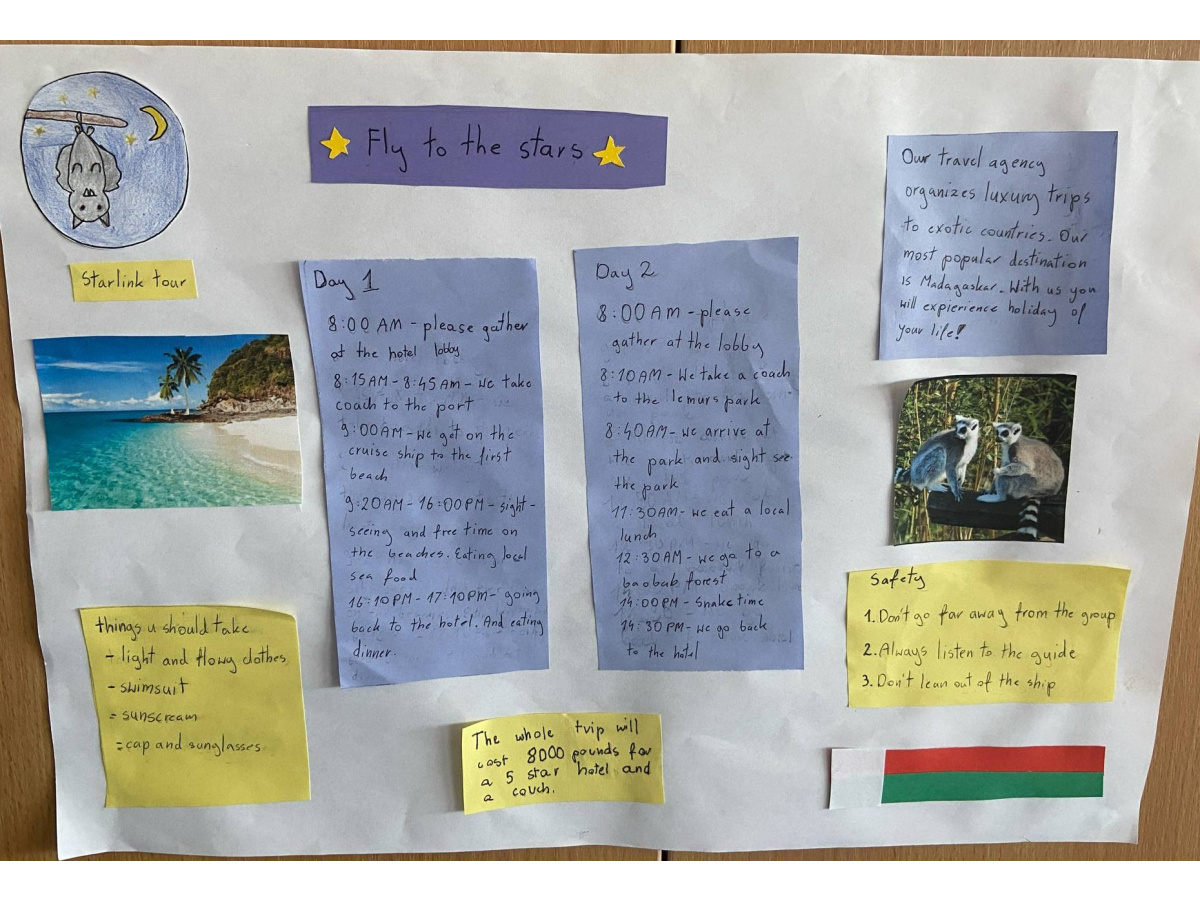 Fly to the stars
Starlink tour
Our travel agency
organizes luxury trips
to exotic countries. Our
most popular destination
is Madagaskar. With us you
will expierience holiday of
your life!
Day 1
8:00 AM - please gather
at the hotel lobby
8:15AM - 8:45 AM - we take
coach to the port
9:00AM - we get on the
cruise ship to the first
beach
9:20AM - 16:00PM - sight-
seeing and free time on
the beaches. Eating local
sea food
16:10PM - 17:10PM - going
back to the hotel. And eating
dinner.
Day 2
8:00AM - please
gather at the lobby
8:10AM - We take a coach
to the lemurs park
8:40AM - we arrive at
the park and sight see
the park
11:30AM - we eat a local
lunch
12:30AM - we go to a
baobab forest
14:00PM - Snake time
14:30PM - we go back
to the hotel
things u should take
- light and flowy clothes
- swimsuit
- sunscream
- cap and sunglasses
The whole trip will
cost 8000 pounds for
a 5 star hotel and
a couch.
Safety
1. Don't go far away from the group
2. Always listen to the guide
3. Don't lean out of the ship